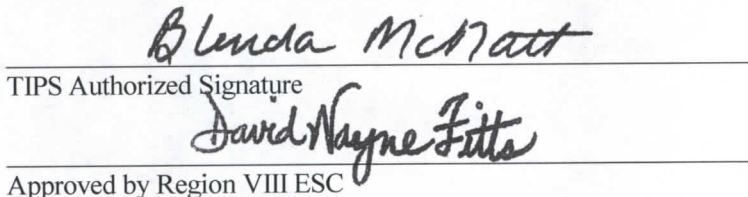 Blenda McNatt
TIPS Authorized Signature
David Wayne Fitts
Approved by Region VIII ESC